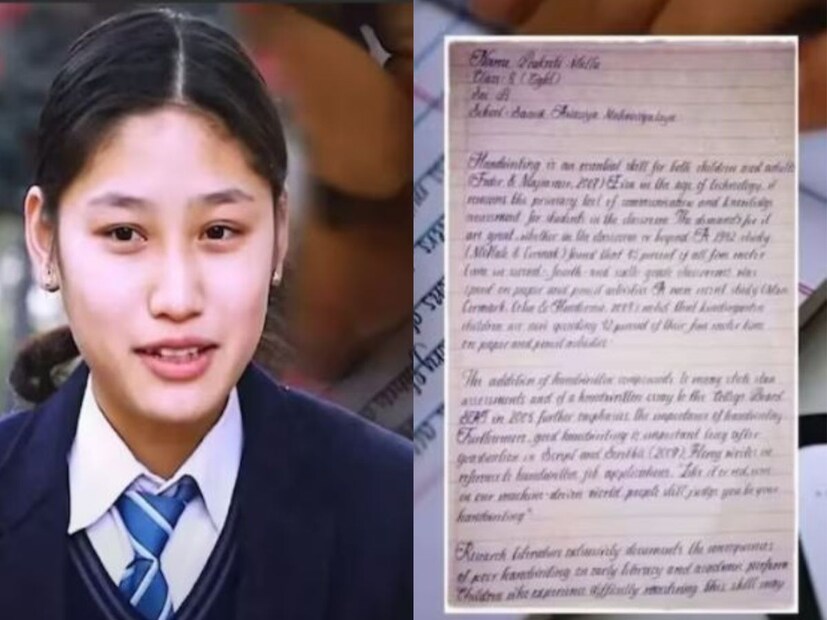 Name Prakriti Malla
Class: 8 (Eight)
Sec. B
School:- Sainik Awasiya Mahavidyalaya
Handwriting is an essential skill for both children and adults
(Feder & Majnemer, 2007) Even in the age of technology, it
remains the primary tool of communication and knowledge
assessment for students in the classroom. The demands for it
are great, whether in the classroom or beyond. A 1992 study
(McHale & Cermak) found that 85 percent of all fine motor
time in second- fourth- and sixth- grade classrooms was
spent on paper and pencil activities. A more recent study
Cermark, & Henderson, 2003) noted that kindergarten
children are now spending 42 percent of their fine motor time
on paper and pencil activities.
The addition of handwritten components to many state
assessments and of a handwritten essay to the College Board
SAT in 2005 further emphasis the importance of handwriting
Furthermore, good handwriting is important long after
graduation in Script and Scribble (2009), Florey writes in
reference to handwritten job applications. "Like it or not,
in our machine-driven world, people still judge you by your
handwriting"
Research literature extensively documents the consequences
of poor handwriting on early literacy and academic perform
Children who experience difficulty mastering this skill may